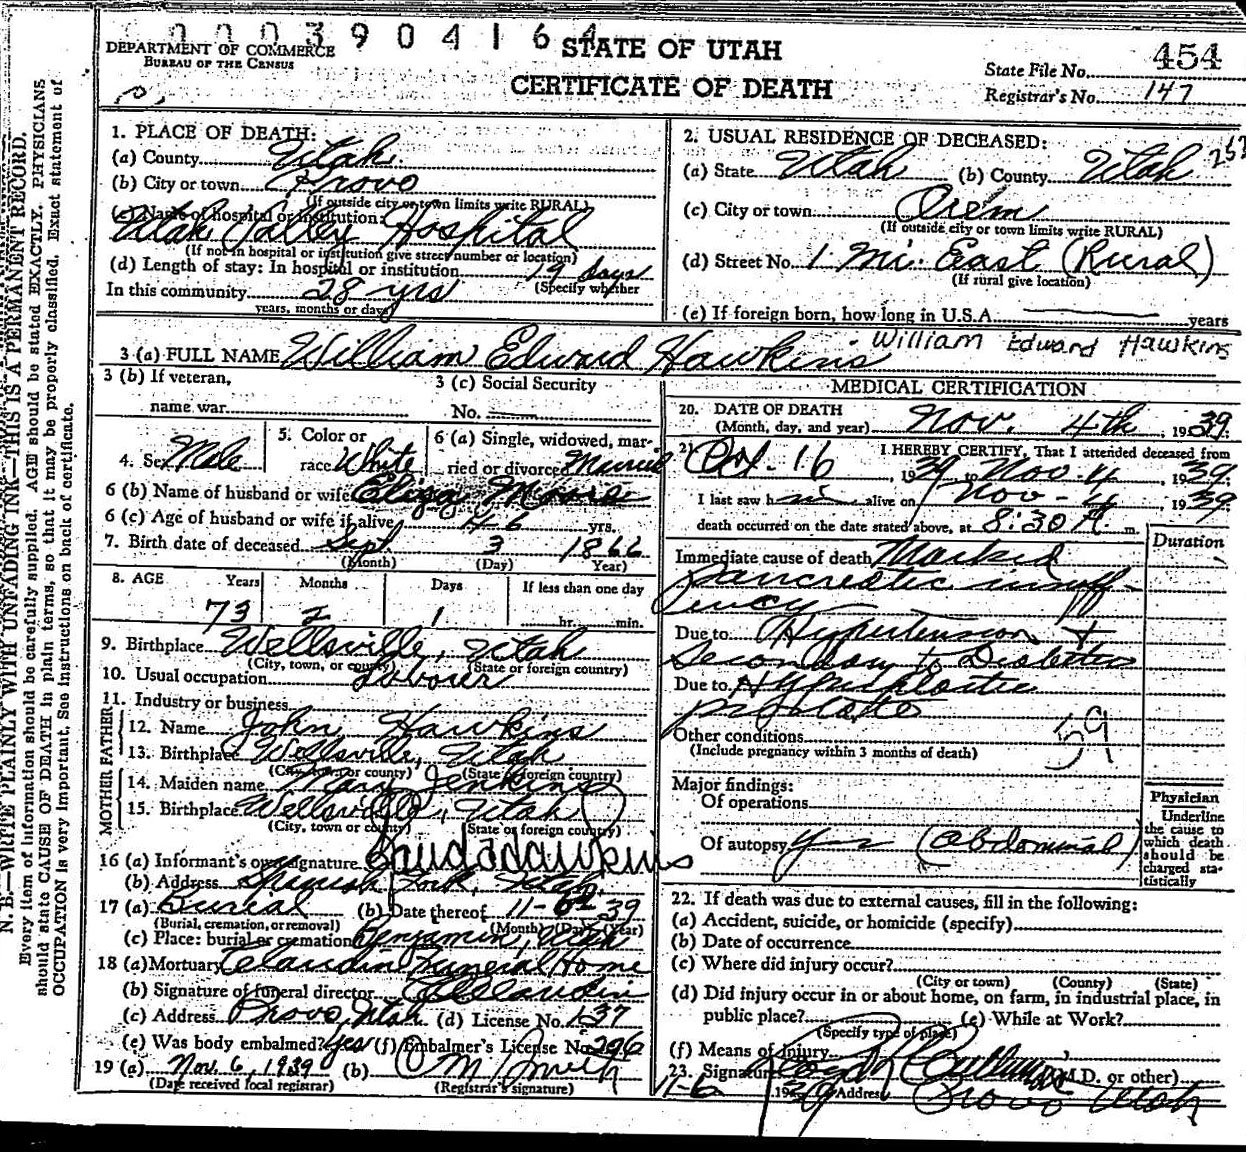 000390416 4
DEPARTMENT OF COMMERCE
BUREAU OF THE CENSUS
STATE OF UTAH
CERTIFICATE OF DEATH
454
State File No.
Registrar's No. 147
N. B.—WRITE PLAINLY WITH UNFADING INK—THIS IS A PERMANENT RECORD.
Every item of information should be carefully supplied. AGE should be stated EXACTLY. PHYSICIANS
should state CAUSE OF DEATH in plain terms, so that it may be properly classified. Exact statement of
OCCUPATION is very important. See instructions on back of certificate.
1. PLACE OF DEATH:
(a) County Utah
(b) City or town Provo
(If outside city or town limits write RURAL)
(c) Name of hospital or institution:
Utah Valley Hospital
(If not in hospital or institution give street number or location)
(d) Length of stay: In hospital or institution 19 days
(Specify whether
In this community 28 yrs
years, months or days)
2. USUAL RESIDENCE OF DECEASED:
(a) State Utah (b) County Utah
(c) City or town Orem
(If outside city or town limits write RURAL)
(d) Street No. 1 Mi. East (Rural)
(If rural give location)
(e) If foreign born, how long in U.S.A. years
3 (a) FULL NAME William Edward Hawkins William Edward Hawkins
3 (b) If veteran,
name war
3 (c) Social Security
No.
4. Sex Male
5. Color or
race White
6 (a) Single, widowed, mar-
ried or divorced Married
6 (b) Name of husband or wife Eliza
6 (c) Age of husband or wife if alive 46 yrs.
7. Birth date of deceased Sept. 3 1866
(Month) (Day) Year)
8. AGE Years Months Days If less than one day
73 2 1 hr. min.
9. Birthplace Wellsville, Utah
(City, town, or county) (State or foreign country)
10. Usual occupation Laborer
11. Industry or business
FATHER
12. Name John Hawkins
13. Birthplace Wellsville, Utah
(City, town or county) (State or foreign country)
MOTHER
14. Maiden name Mary Jenkins
15. Birthplace Wellsville, Utah
(City, town or county) (State or foreign country)
16 (a) Informant's own signature Hawkins
(b) Address Spanish Fork, Utah
17 (a) Burial (b) Date thereof 11- 39
(Burial, cremation, or removal) (Month) (Day) (Year)
(c) Place: burial or cremation Benjamin, Utah
18 (a) Mortuary Claudin Funeral Home
(b) Signature of funeral director Claudin
(c) Address Provo, Utah (d) License No. 137
(e) Was body embalmed? Yes (f) Embalmer's License No. 296
19 (a) Nov. 6, 1939 (b)
(Date received local registrar) (Registrar's signature)
MEDICAL CERTIFICATION
20. DATE OF DEATH
(Month, day, and year) Nov. 4th, 1939.
21. I HEREBY CERTIFY, That I attended deceased from
Oct. 16, 1939 to Nov-4, 1939.
I last saw him alive on Nov-4, 1939
death occurred on the date stated above, at 8:30 A. m.
Duration
Immediate cause of death Marked
pancreatic insuffi-
ciency
Due to Hypertension +
Secondary to Diabetes
Due to Hyperplastic
prostate
59
Other conditions
(Include pregnancy within 3 months of death)
Major findings:
Of operations
Of autopsy yes (abdominal)
Physician
Underline
the cause to
which death
should be
charged sta-
tistically
22. If death was due to external causes, fill in the following:
(a) Accident, suicide, or homicide (specify)
(b) Date of occurrence
(c) Where did injury occur?
(City or town) (County) (State)
(d) Did injury occur in or about home, on farm, in industrial place, in
public place? (e) While at Work?
(Specify type of place)
(f) Means of injury
23. Signature (M.D. or other)
11-6 1939 Address Provo Utah